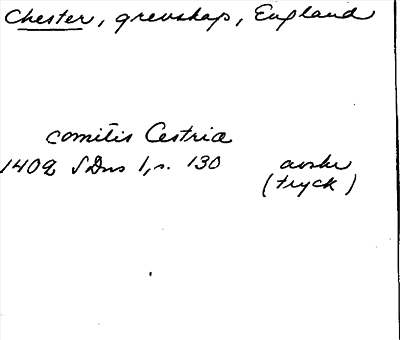 Chester, grevskap, England
comitis Cestrie
1402 SDns 1, s. 130 avskr
(tryck)